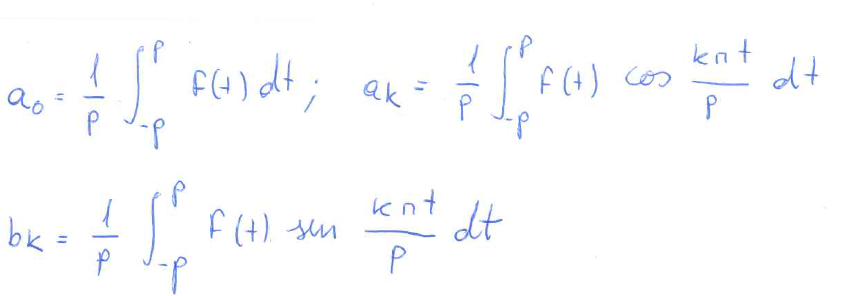 a₀ = 1/p ∫₋ₚᵖ f(t) dt ; aₖ = 1/p ∫₋ₚᵖ f(t) cos kπt/p dt
bₖ = 1/p ∫₋ₚᵖ f(t) sen kπt/p dt